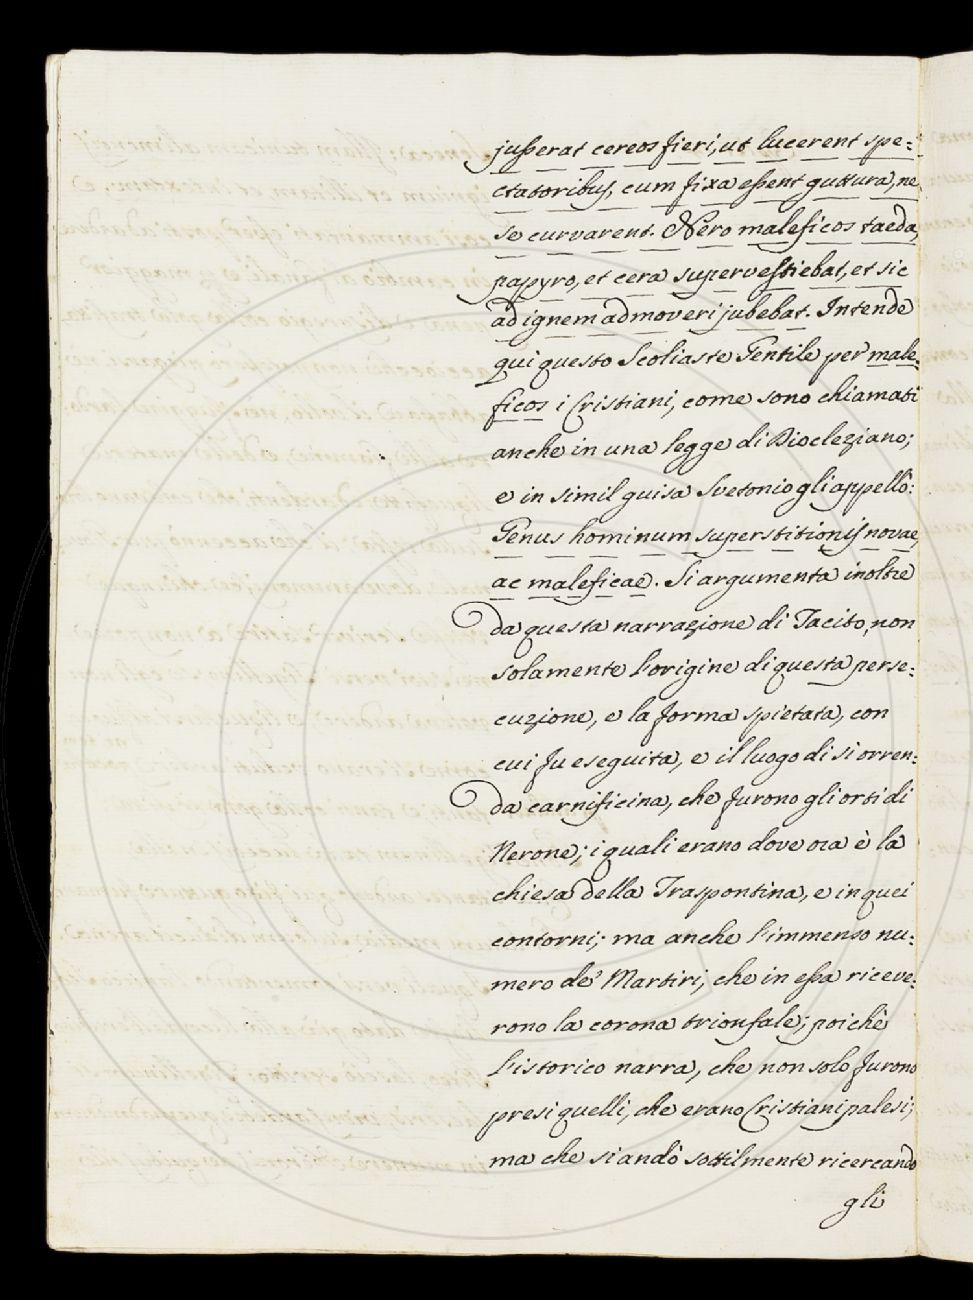 jusserat cereos fieri, ut lucerent spe=
ctatoribus, cum fixa essent guttura, ne
se curvarent. Nero maleficos taeda,
papyro, et cera supervestiebat, et sic
ad ignem admoveri jubebat. Intende
qui questo Scoliaste Gentile per male=
ficos i Cristiani, come sono chiamati
anche in una legge di Diocleziano;
e in simil guisa Svetonio gli appellò:
Genus hominum superstitionis novae,
ac maleficae. Si argumenta inoltre
da questa narrazione di Tacito, non
solamente l'origine di questa perse=
cuzione, e la forma spietata, con
cui fu eseguita, e il luogo di si orren=
da carnificina, che furono gli orti di
Nerone; i quali erano dove ora è la
chiesa della Traspontina, e in quei
contorni; ma anche l'immenso nu=
mero de' Martiri, che in essa riceve=
rono la corona trionfale; poichè
l'istorico narra, che non solo furono
presi quelli, che erano Cristiani palesi;
ma che si andò sottilmente ricercando
gli